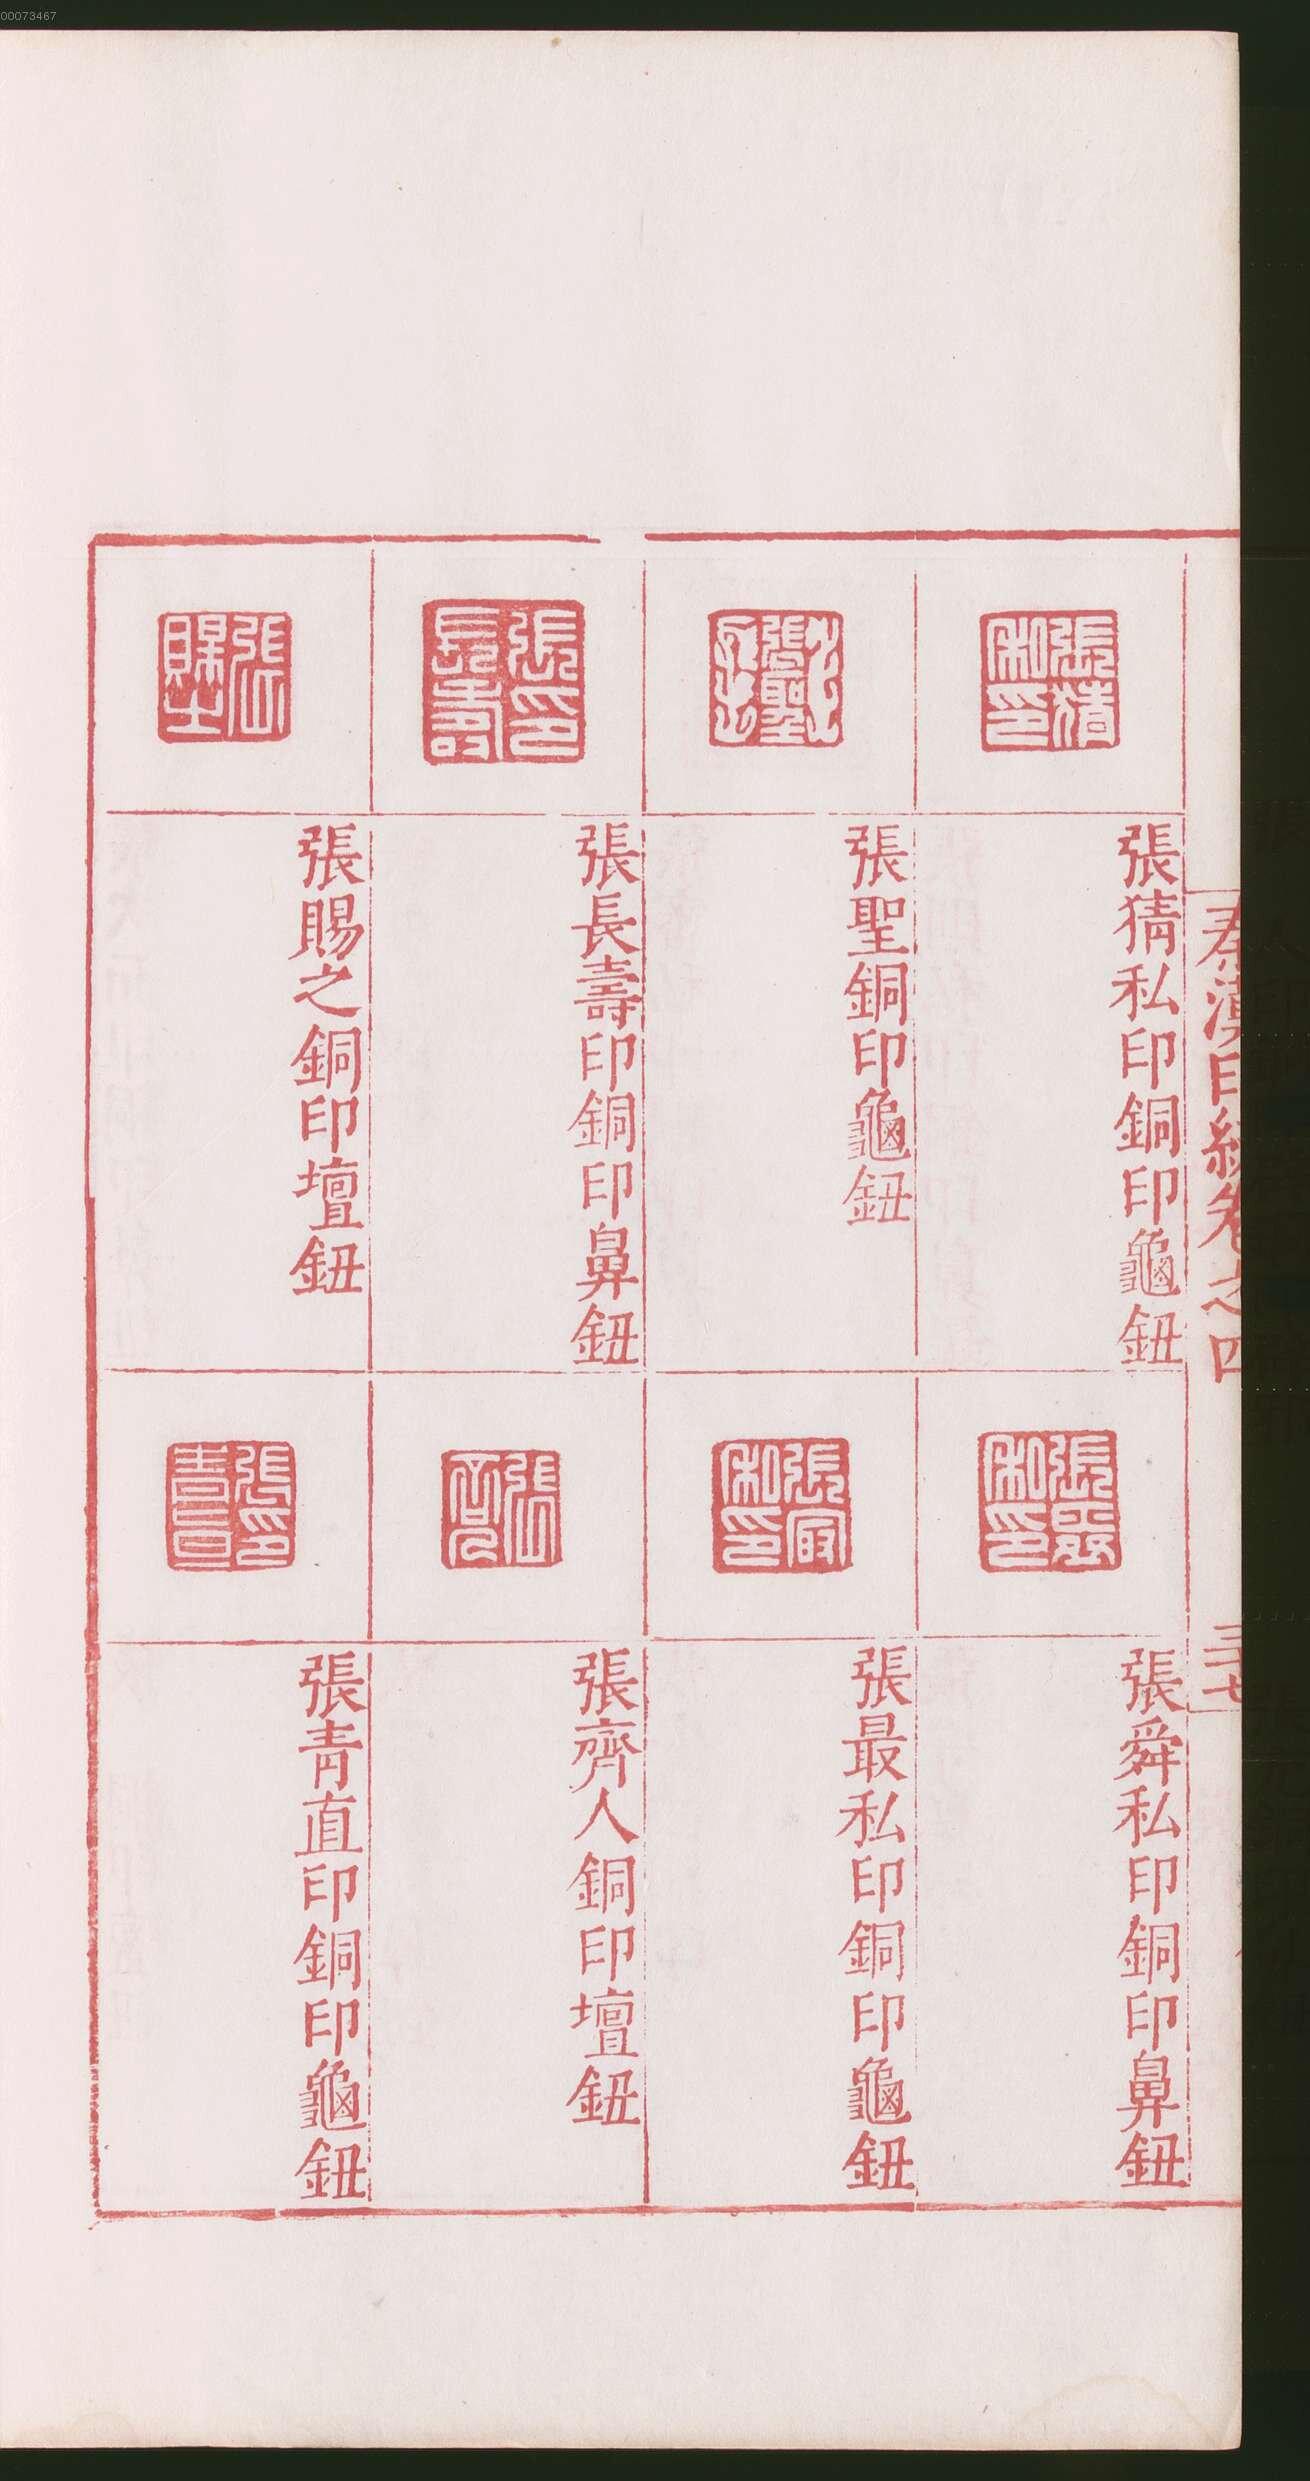 00073467
秦漢印統卷之四
三十七
張猜私印
張猜私印銅印龜鈕
張聖
張聖銅印龜鈕
張長壽印
張長壽印銅印鼻鈕
張賜之
張賜之銅印壇鈕
張舜私印
張舜私印銅印鼻鈕
張最私印
張最私印銅印龜鈕
張齊人
張齊人銅印壇鈕
張青直印
張青直印銅印龜鈕